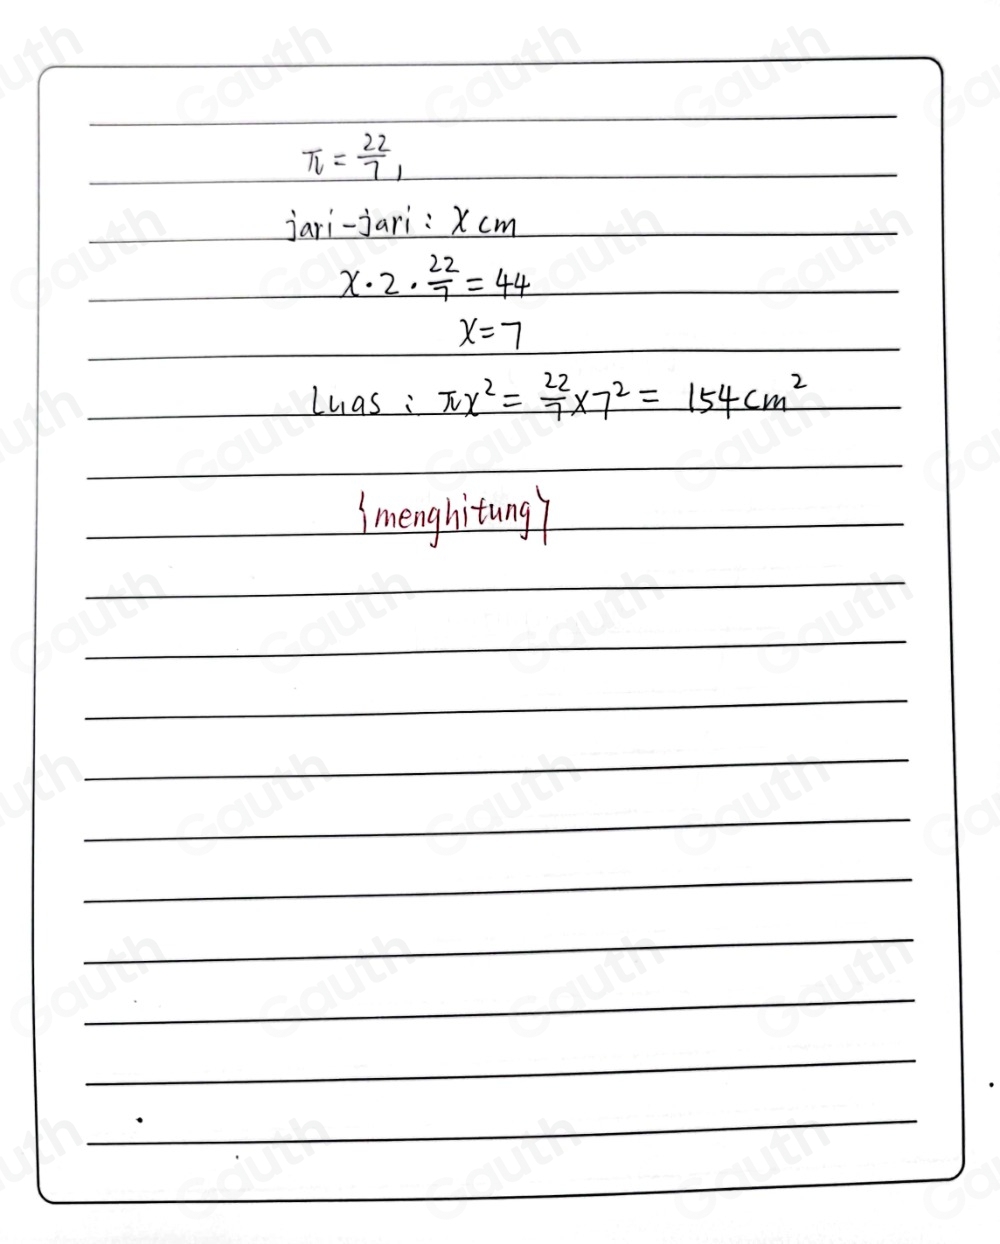 π = 22/7,
jari-jari : x cm
x · 2 · 22/7 = 44
x = 7
Luas : πx² = 22/7 × 7² = 154 cm²
{menghitung}
Gauth